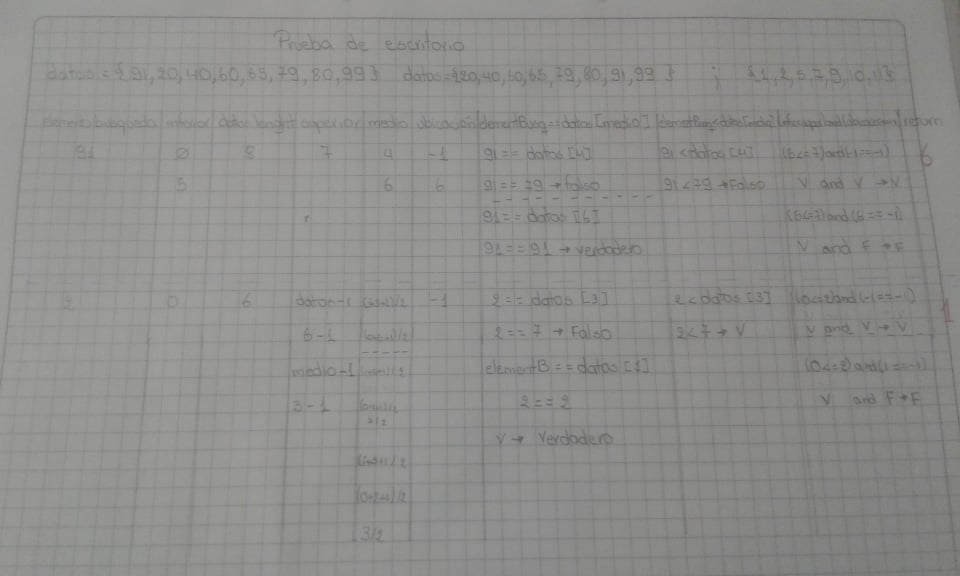 Prueba de escritorio
datos = { 91, 20, 40, 60, 65, 79, 80, 99 } datos = { 20, 40, 60, 65, 79, 80, 91, 99 } ; { 1, 2, 5, 7, 9, 10, 11 }
element busqueda inferior datos lenght superior medio ubicación elementBusq == datos [medio] return
91 0 8 7 4 -1 91 == datos [4] 91 < datos [4] (0<=7) and (-1==-1) 6
5 6 6 91 == 79 → falso 91 < 79 → Falso V and V → V
91 == datos [6] (5<=7) and (6 == -1)
91 == 91 → verdadero V and F → F
2 0 6 datos-1 -1 2 == datos [3] 2 < datos [3] 1
6-1 2 == 7 → Falso 2 < 7 → V V and V → V
medio-1 elementB == datos [1] (0<=2) and (1==-1)
3-1 2 == 2 V and F → F
2/2
V → Verdadero
(0+2+1)/2
3/2